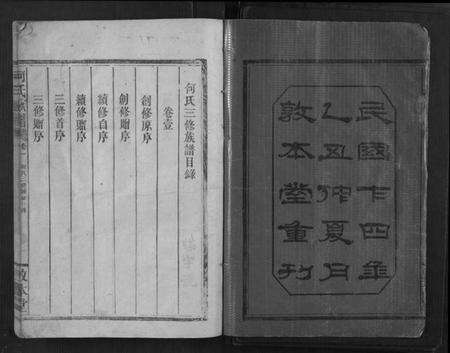 民國十四年
乙丑仲夏月
敦本堂重刊
何氏三修族譜目錄
卷壹
創修原序
創修贈序
續修自序
續修贈序
三修首序
三修贈序